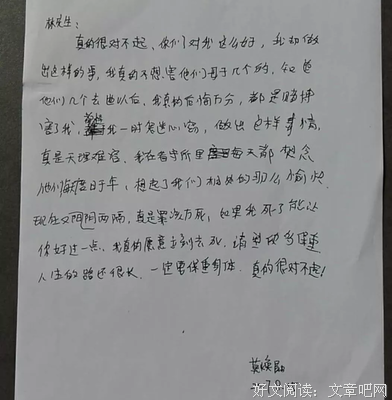 林先生：
真的很对不起、你们对我这么好，我却做
出这样的事，我真的不想害他们母子几个的，知道
他们几个去世以后，我真的后悔万分，都是赌博
害了我，我一时鬼迷心窍，做出这样事情，
真是天理难容。我在看守所里每天都想念
他们母子，想起了我们相处的那么愉快，
现在又阴阳两隔，真是罪该万死，如果我死了能让
你好过一点、我真的愿意立刻去死，请
人生的路还很长，一定要保重身体，真的很对不起！
莫焕晶
好文阅读：文章吧网